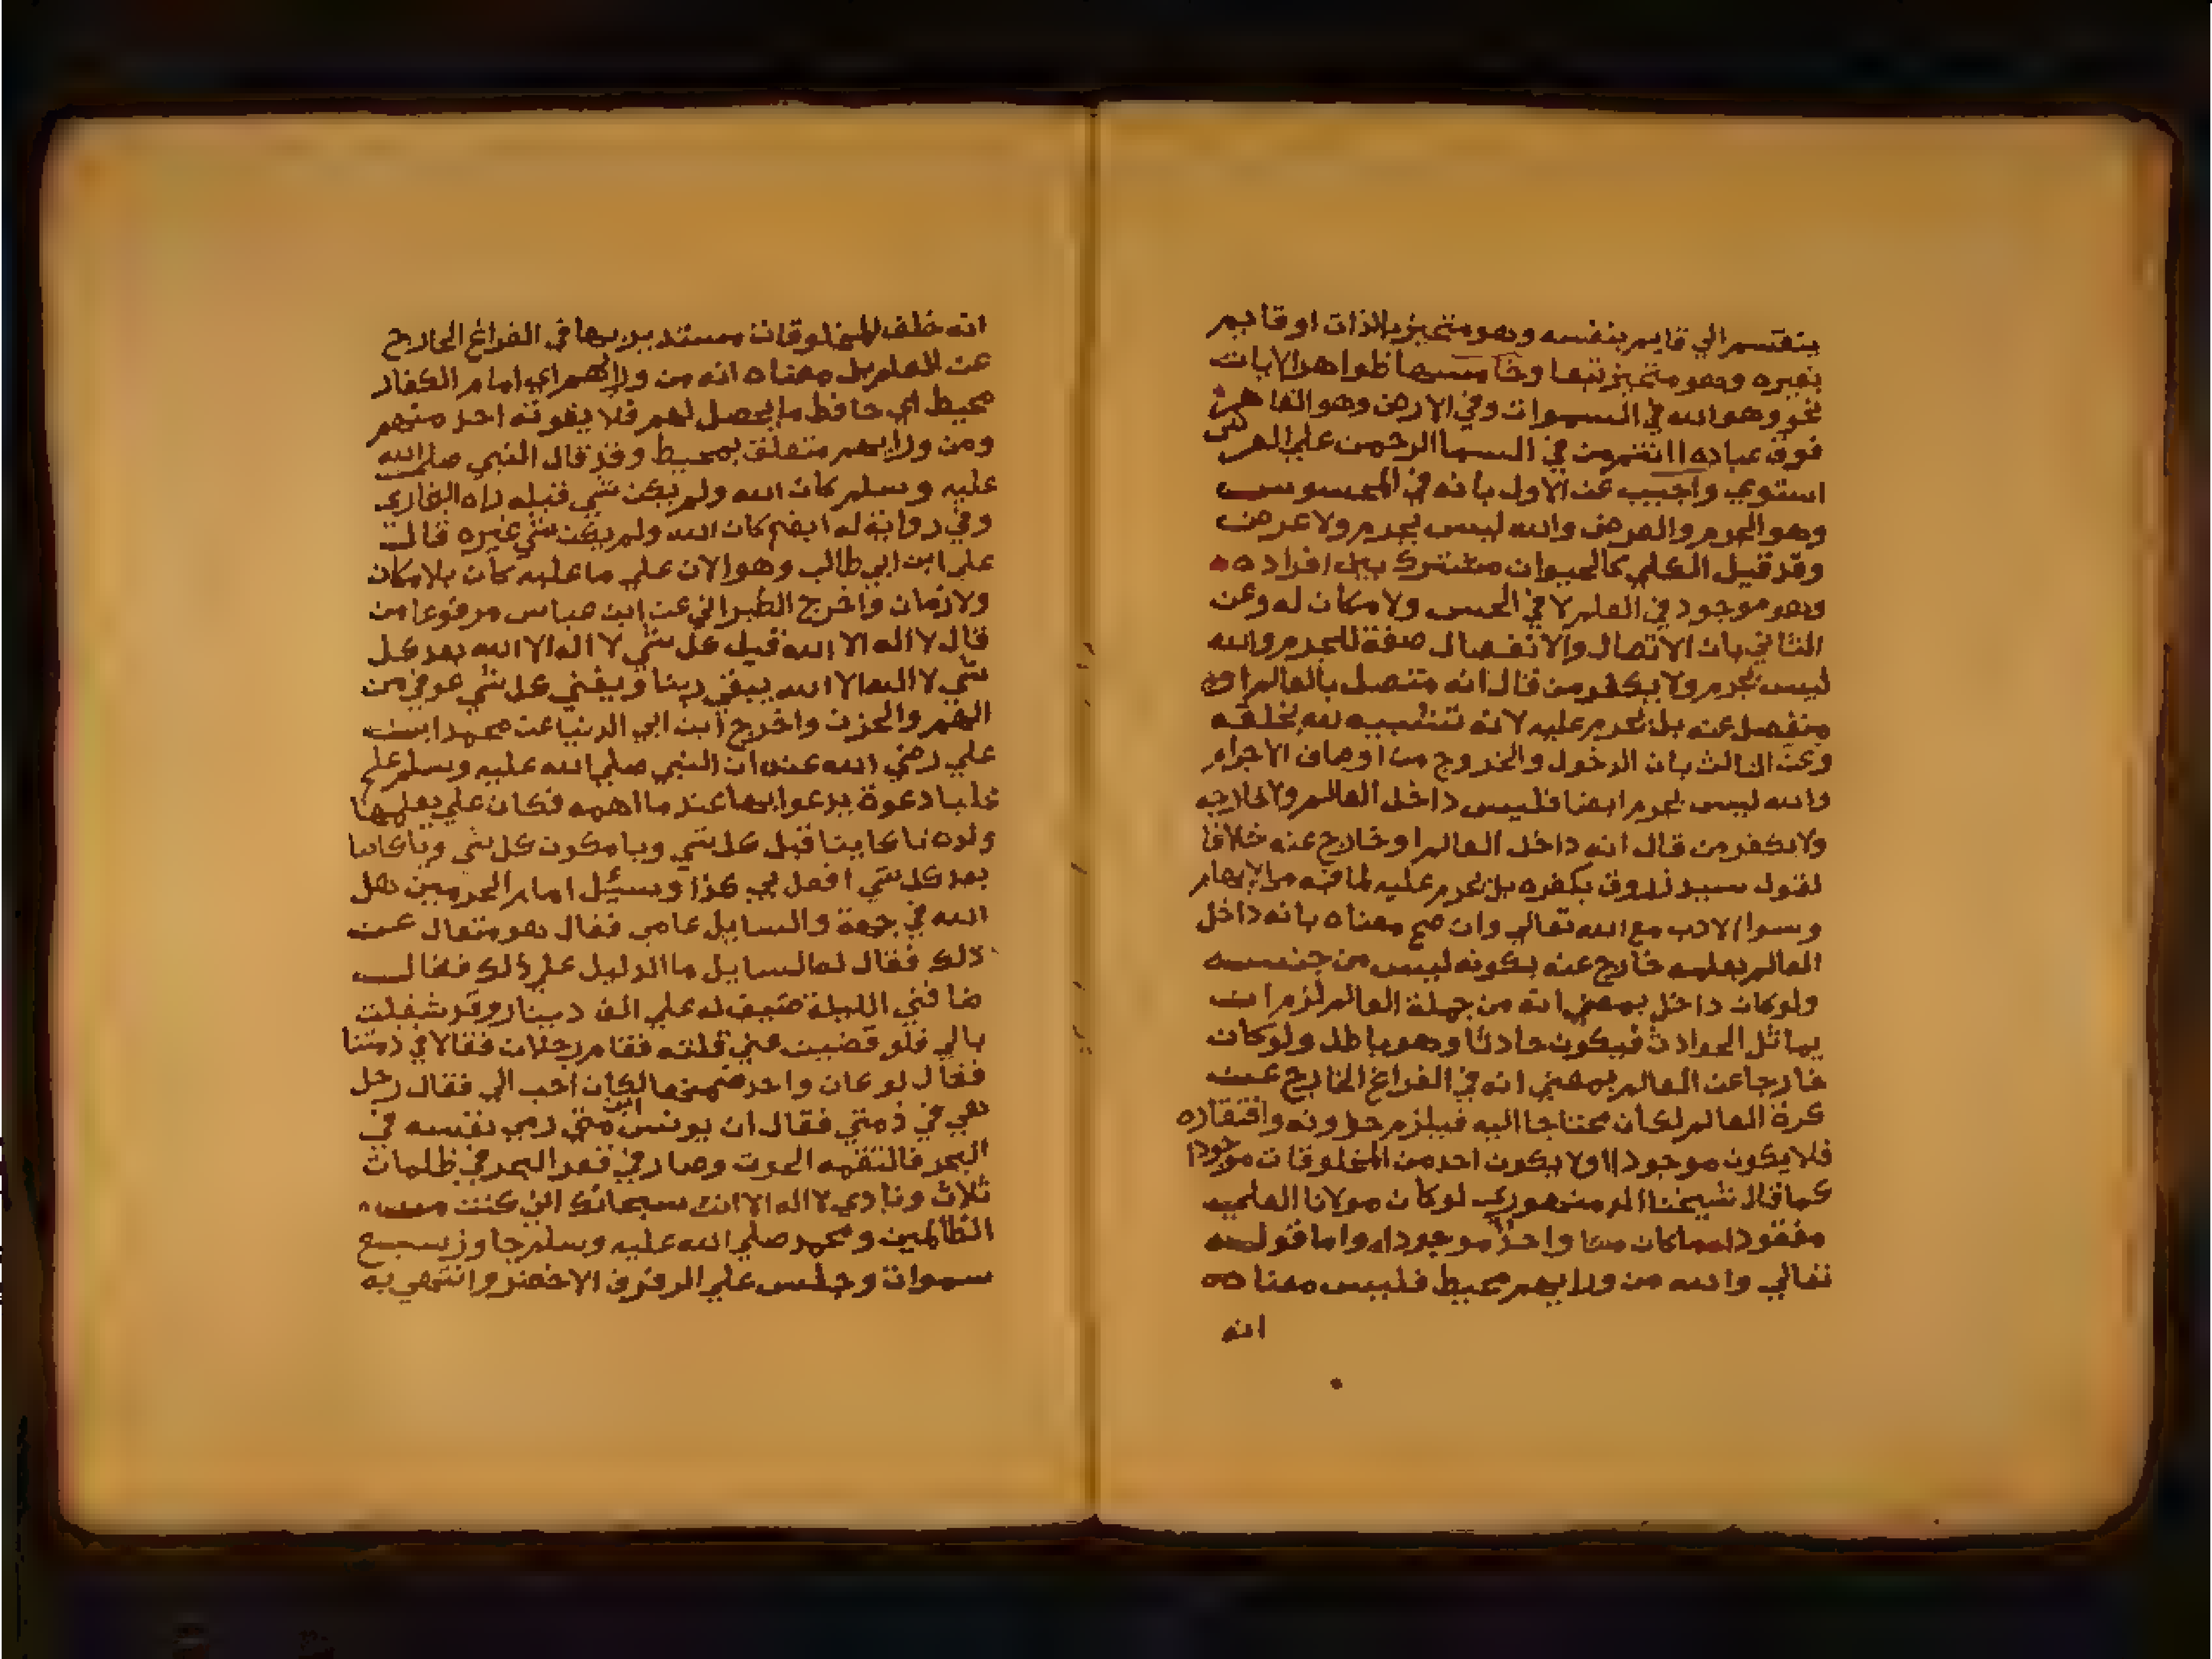 ينقسم الي قايم بنفسه وهو متحيز بالذات او قايم
بغيره وهو متحيز تبعا وخامسها ظواهر الايات
نحو وهو الله في السموات وفي الارض وهو القاهر
فوق عباده اامنتم من في السما الرحمن علي العرش
استوي واجيب عن الاول بانه في المحسوس
وهو الجرم والعرض والله ليس بجرم ولا عرض
وقد قيل الكلي كالحيوان مشترك بين افراده
وهو موجود في العلم لا في الحس ولا مكان له وعن
الثاني بان الاتصال والانفصال صفة للجرم والله
ليس بجرم ولا يكفر من قال انه متصل بالعالم او
منفصل عنه بل يحرم عليه لانه تشبيه له بخلقه
وعن الثالث بان الدخول والخروج من اوصاف الاجرام
والله ليس بجرم ايضا فليس داخل العالم ولا خارجه
ولا يكفر من قال انه داخل العالم او خارج عنه خلافا
لقول سيد زروق بكفره بل يحرم عليه لما فيه من الايهام
وسوا الادب مع الله تعالي وان صح معناه بانه داخل
العالم بعلمه خارج عنه بكونه ليس من جنسه
ولو كان داخل بمعني انه من جملة العالم لزم ان
يماثل الحوادث فيكون حادثا وهو باطل ولو كان
خارجا عن العالم بمعني انه في الفراغ الخارج عن
كرة العالم لكان محتاجا اليه فيلزم حدوثه وافتقاره
فلا يكون موجودا ولا يكون احد من المخلوقات موجودا
كما قال شيخنا الدمنهوري لو كان مولانا العلي
مفقودا لما كان منا واحدا موجودا واما قوله
تعالي والله من ورايهم محيط فليس معناه
انه
انه خلف المخلوقات مستدير بها في الفراغ الخارج
عن العالم بل معناه انه من ورايهم اي امام الكفار
محيط اي حافظ ما يحصل لهم فلا يفوته احد منهم
ومن ورايهم متعلق بمحيط وقد قال النبي صلي الله
عليه وسلم كان الله ولم يكن شي قبله رواه البخاري
وفي رواية له ايضا كان الله ولم يكن شي غيره قال
علي ابن ابي طالب وهو الان علي ما عليه كان بلا مكان
ولا زمان واخرج الطبراني عن ابن عباس مرفوعا من
قال لا اله الا الله قبل كل شي لا اله الا الله بعد كل
شي لا اله الا الله يبقي ربنا ويفني كل شي عوفي من
الهم والحزن واخرج ابن ابي الدنيا عن محمد ابن
علي رضي الله عنه ان النبي صلي الله عليه وسلم علم
عليا دعوة يدعوا بها عند ما اهمه فكان علي يعلمها
ولده يا كاينا قبل كل شي ويا مكون كل شي ويا كاينا
بعد كل شي افعل بي كذا وسئيل امام الحرمين هل
الله في جهة والسايل عامي فقال هو متعال عن
ذلك فقال له السايل ما الدليل علي ذلك فقال
ضافني الليلة ضيف له علي الف دينار وقد شغلت
بالي فلو قضيت عني قلته فقام رجلان فقالا في ذمتنا
فقال لو كان واحد ضمنها لكان احب الي فقال رجل
هي في ذمتي فقال ان يونس ابن متي رمي نفسه في
البحر فالتقمه الحوت وصار في قعر البحر في ظلمات
ثلاث ونادي لا اله الا انت سبحانك اني كنت من
الظالمين ومحمد صلي الله عليه وسلم جاوز سبع
سموات وجلس علي الرفرف الاخضر وانتهي به